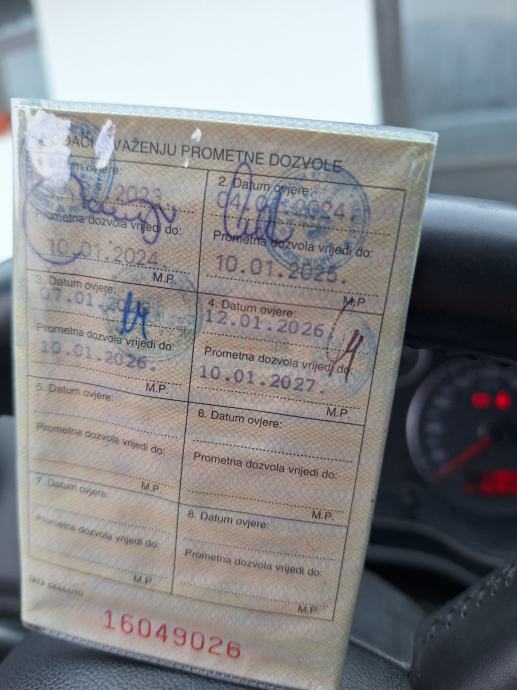 VAŽENJU PROMETNE DOZVOLE
ovjere:
2023.
Prometna dozvola vrijedi do:
10.01.2024.
M.P.
2. Datum ovjere:
2024.
Prometna dozvola vrijedi do:
10.01.2025.
M.P.
3. Datum ovjere:
07.01.
Prometna dozvola vrijedi do:
10.01.2026.
M.P.
4. Datum ovjere:
12.01.2026.
Prometna dozvola vrijedi do:
10.01.2027.
M.P.
5. Datum ovjere:
Prometna dozvola vrijedi do:
M.P.
6. Datum ovjere:
Prometna dozvola vrijedi do:
M.P.
7 Datum ovjere:
Prometna dozvola vrijedi do:
M.P.
8. Datum ovjere:
Prometna dozvola vrijedi do:
M.P.
16049026